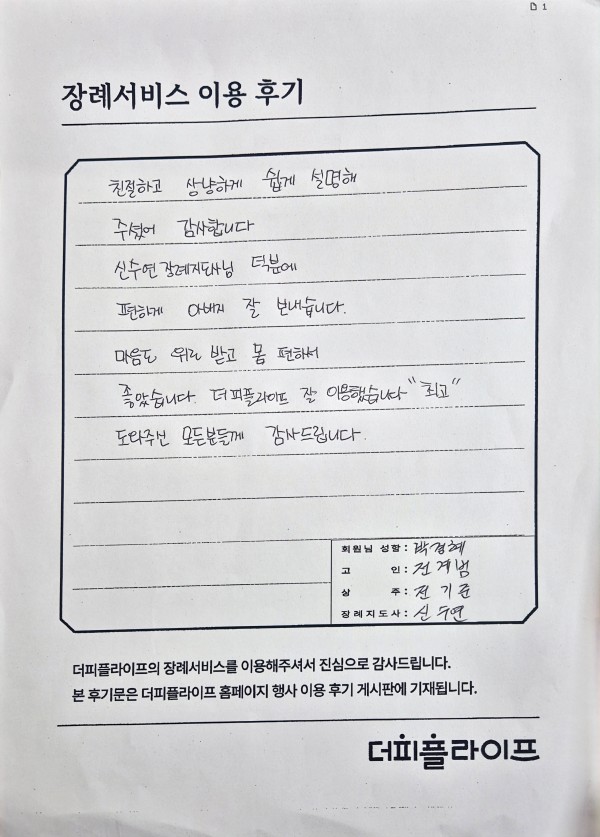 D 1
장례서비스 이용 후기
친절하고 상냥하게 쉽게 설명해
주셨어 감사합니다
신수연장례지도사님 덕분에
편하게 아버지 잘 보내습니다.
마음도 위로 받고 몸 편하서
좋았습니다. 더피플라이프 잘 이용했습니다 "최고"
도와주신 모든분들께 감사드립니다.
회원님 성함 : 박경혜
고 인 : 전계범
상 주 : 전기준
장례지도사 : 신수연
더피플라이프의 장례서비스를 이용해주셔서 진심으로 감사드립니다.
본 후기문은 더피플라이프 홈페이지 행사 이용 후기 게시판에 기재됩니다.
더피플라이프